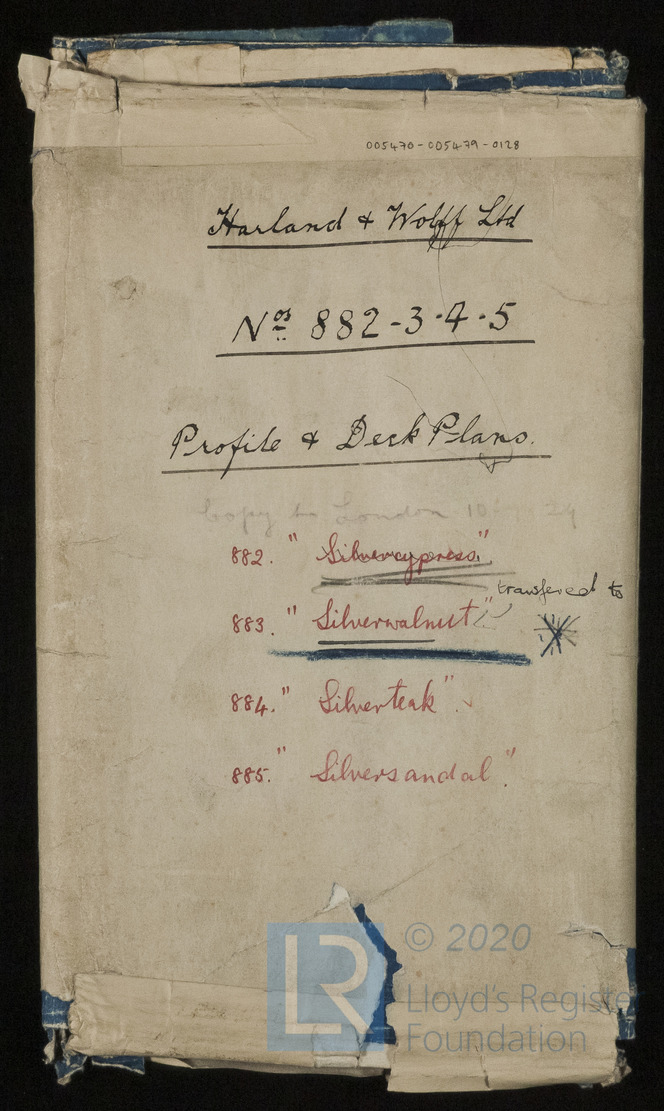 005470-005479-0128
Harland & Wolff Ltd
Nos 882-3-4-5
Profile & Deck Plans.
Copy to London 10 29
882. "Silvercypress"
transfered to
883. "Silverwalnut"
884. "Silverteak".
885. "Silversandal".
LR
© 2020
Lloyd's Register
Foundation